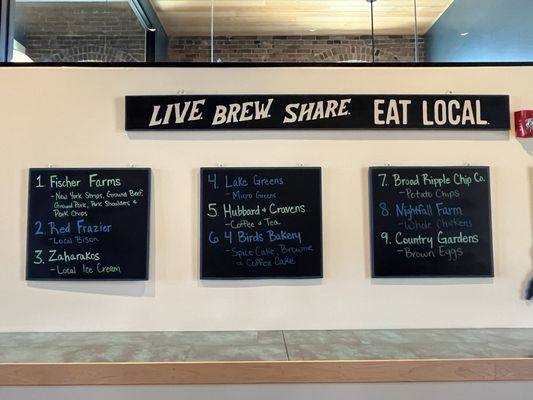 LIVE. BREW. SHARE. EAT LOCAL.
1 Fischer Farms
-New York Strips, Ground Beef,
Ground Pork, Pork Shoulders &
Pork Chops
2. Red Frazier
-Local Bison
3. Zaharakos
-Local Ice Cream
4. Lake Greens
-Micro Greens
5. Hubbard & Cravens
-Coffee & Tea
6. 4 Birds Bakery
-Spice Cake, Brownie
& Coffee Cake
7. Broad Ripple Chip Co.
-Potato Chips
8. Nightfall Farm
-Whole Chickens
9. Country Gardens
-Brown Eggs